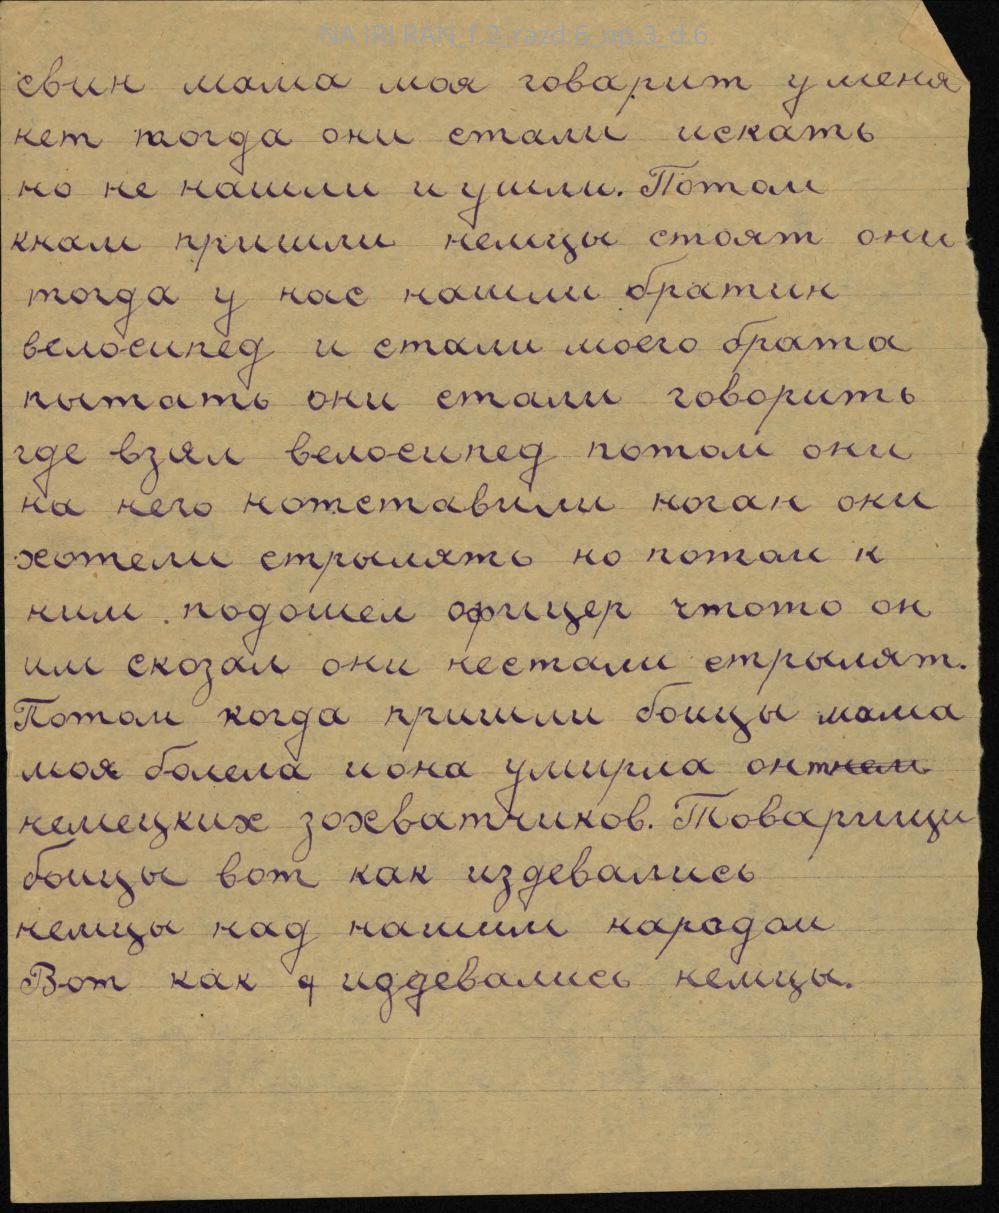 NA IRI RAN_f.2_razd.6_op.3_d.6
свин мама моя говарит уменя
нет тогда они стали искать
но не нашли и ушли. Потом
кнам пришли немцы стоят они
тогда у нас нашли братин
велосипед и стали моего брата
пытать они стали говорить
где взял велосипед потом они
на него нотставили ноган они
хотели стрылять но потом к
ним подошел офицер чтото он
им скозал они нестали стрылят.
Потом когда пришли боицы мама
моя болела иона умирла от нем
немецких зохватчиков. Товарищи
боицы вот как издевались
немцы над нашим народом
Вот как иддевались немцы.